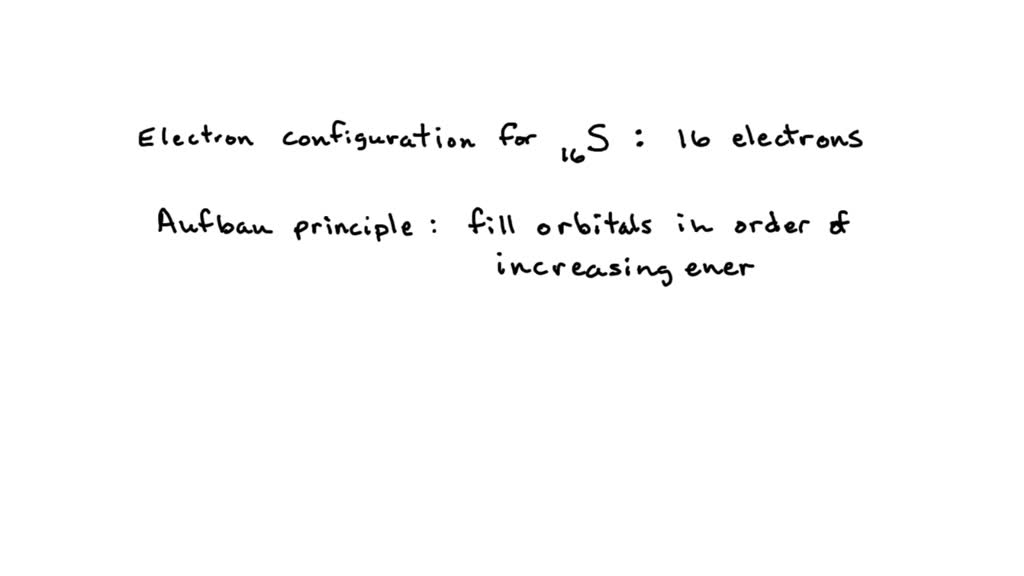 Electron configuration for ₁₆S : 16 electrons
Aufbau principle : fill orbitals in order of
increasing ener